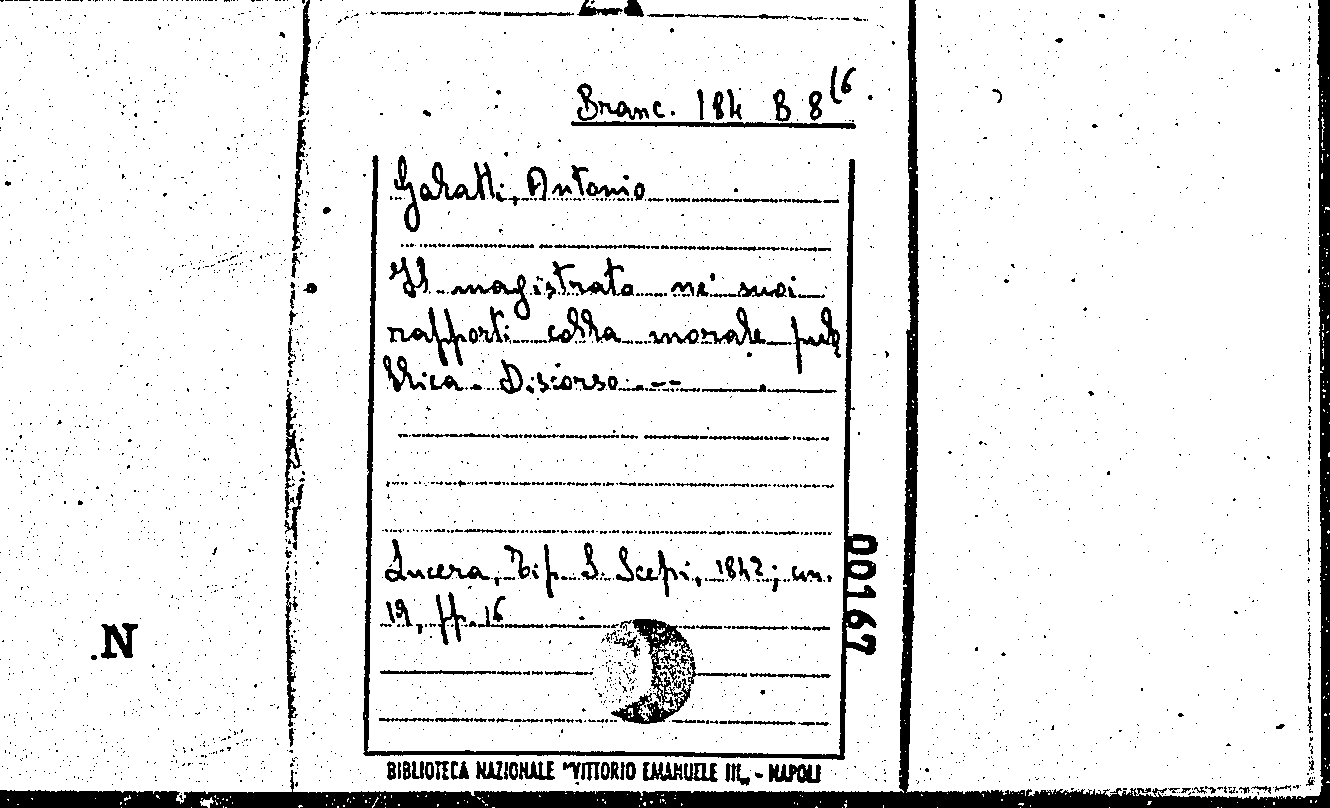 Branc. 184 B 8 (6.
Galatti, Antonio
Il magistrato ne' suoi
rapporti colla morale pub
blica. Discorso ---
Lucera, Tip. S. Scepi, 1842; cm.
19, pp. 16
00167
N
BIBLIOTECA NAZIONALE "VITTORIO EMANUELE III„ - NAPOLI